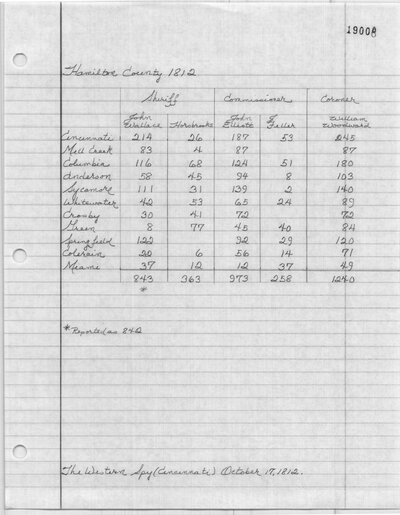 19008
Hamilton County 1812
Sheriff Commissioner Coroner
John Wallace Hornbrooke John Elliott J. Feller William Woodward
Cincinnati 214 26 187 53 245
Mill Creek 83 4 87 87
Columbia 116 68 124 51 180
Anderson 58 45 94 8 103
Sycamore 111 31 139 2 140
Whitewater 42 53 65 24 89
Crosby 30 41 72 72
Green 8 77 45 40 84
Springfield 122 92 29 120
Colerain 22 6 56 14 71
Miami 37 12 12 37 49
843 363 973 258 1240
*
* Reported as 842
The Western Spy (Cincinnati) October 17, 1812.